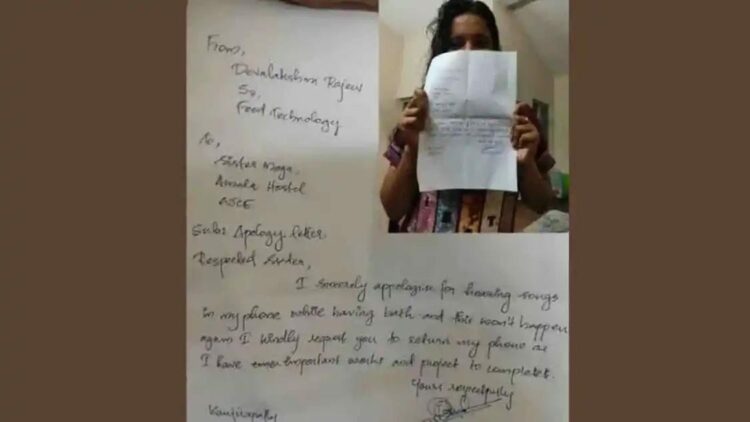 From,
Devalekshmi Rajeev
S2,
Food Technology
To,
Sister Maga,
Amala Hostel
AJCE
Sub: Apology letter
Respected Sister,
I sincerely appologise for hearing songs
in my phone while having bath and this won't happen
again I kindly request you to return my phone as
I have important works and project to complete.
Yours respectfully
Kanjirapally